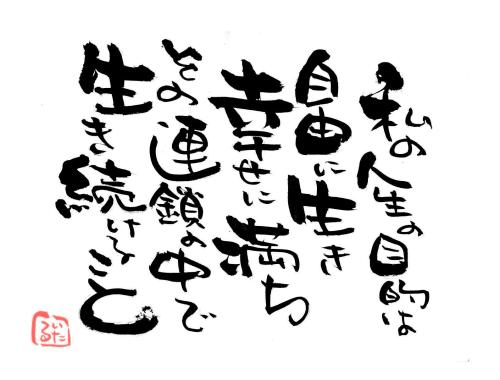 私の人生の目的は
自由に生き
幸せに満ち
その連鎖の中で
生き続けること
いたる